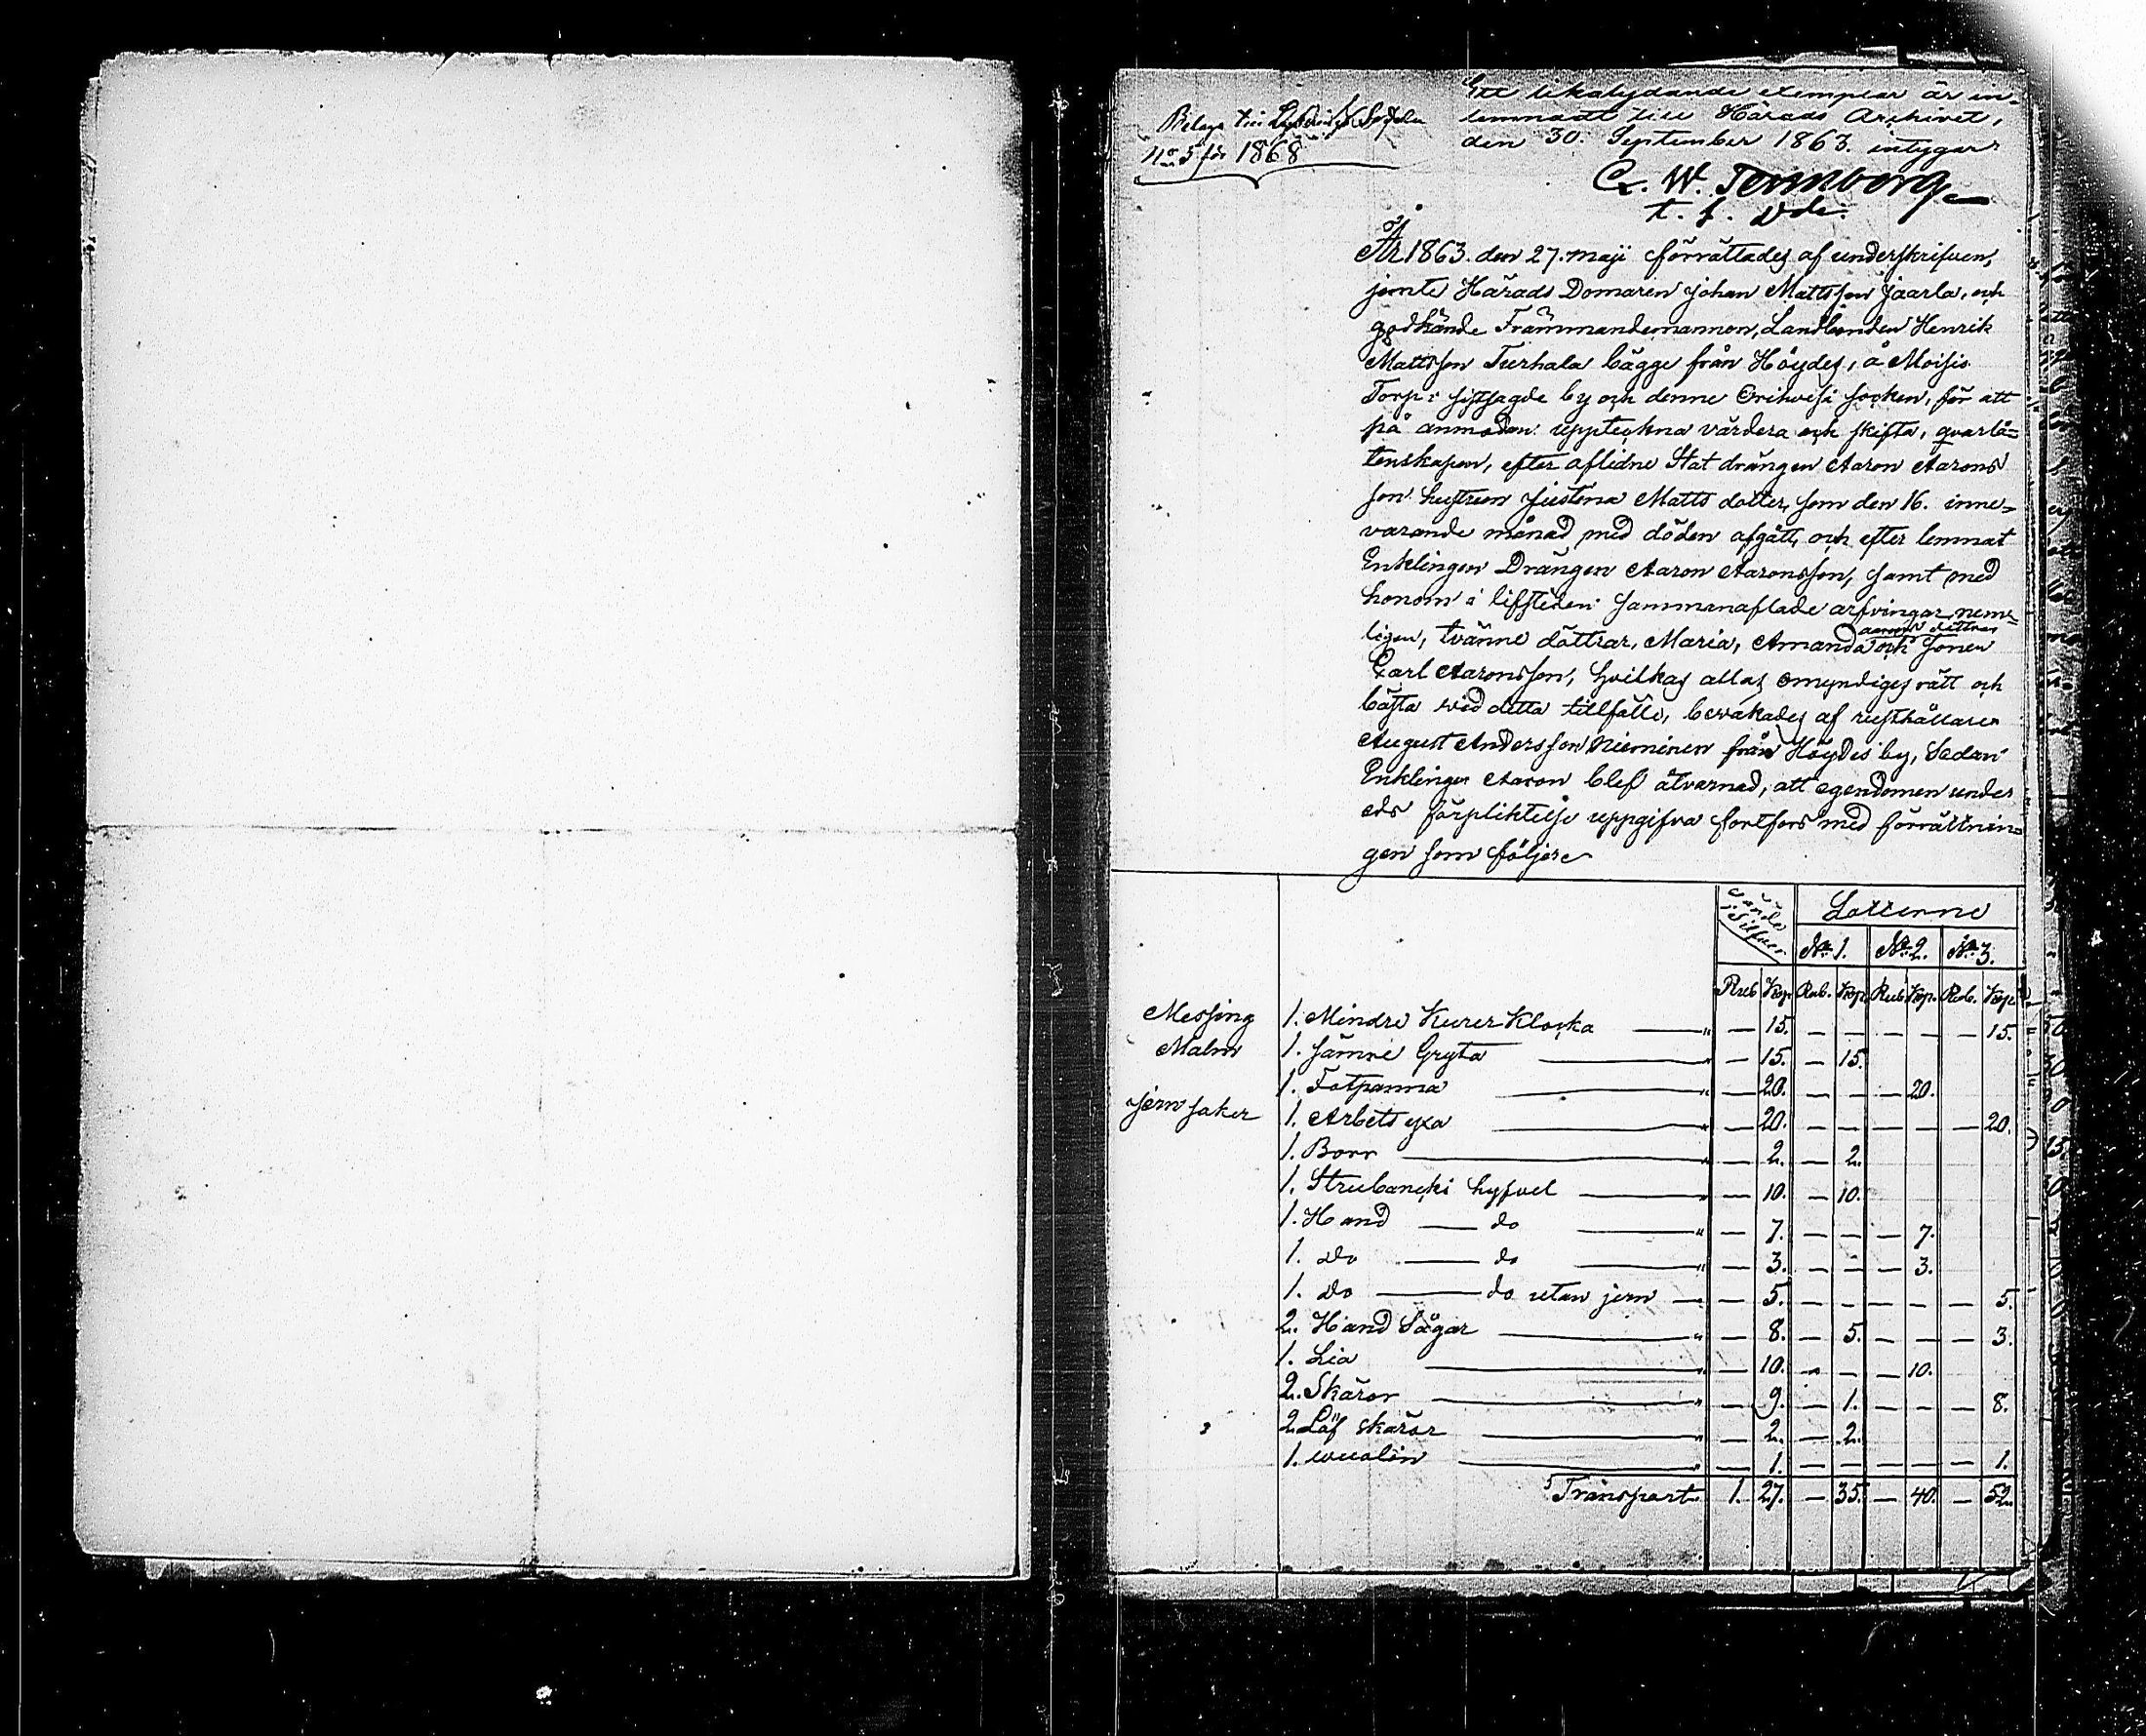 Ett likalydande exemplar är in-
lemnadt till Härads Archivet,
den 30. September 1863. intygar
C. W. Ternborg
t. f. Vdi.
Belaga till
No 5 för 1868
År 1863. den 27. maji förrättades af underskrifven,
jemte Härads Domaren Johan Mattsson Jaarla, och
godkände Främmandemannen, Landbonden Henrik
Mattsson Turhala bägge från Höydes, å Moisis
Torp i sistsagde by och denne Orihvesi socken, för att
på anmodan uppteckna värdera och skifta, qvarlå-
tenskapen, efter aflidne Stat drängen Aaron Aarons
son hustrun Justina Matts dotter, som den 16. inne-
varande månad med döden afgått, och efter lemnat
Enklingen Drängen Aaron Aaronsson, samt med
honom i lifstiden sammanaflade arfvingar nem-
ligen, tvänne döttrar, Maria, Amanda aarons döttrar och Sonen
Carl Aaronsson, hvilkas allas omyndiges rätt och
bästa vid detta tillfälle, bevakades af rusthållaren
August Andersson Nieminen från Höydes by, Sedan
Enklingen Aaron blef åtvarnad, att egendomen under
eds förpliktelse uppgifva fortfors med förrättnin-
gen som följer
Värde i Silfver Lotterne
No 1. No 2. No 3.
Rub Kop. Rub. Kop. Rub Kop. Rub. Kop.
Messing 1. Mindre Kurer Klocka " — 15. — — — — — 15.
Malm 1. Sämre Gryta " — 15. — 15.
1. Fotpanna " — 20. — — — 20.
Jern saker 1. Arbets yxa " — 20. — — — — — 20.
1. Borr " — 2. — 2.
1. Strubancki hyfvel " — 10. — 10.
1. Hand — do " — 7. — — — 7.
1. Do — do " — 3. — — — 3.
1. Do — do utan jern — — 5. — — — — — 5.
2. Hand Sågar " — 8. — 5. — — — 3.
1. Lia " — 10. — — — 10.
2. Skäror " — 9. — 1. — — — 8.
2. Löf skäror " — 2. — 2.
1. wuolin " — 1. — — — — — 1.
Transport 1. 27. — 35. — 40. — 52.